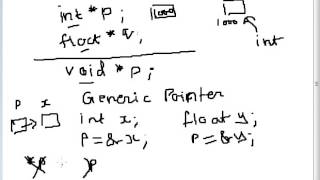 int *p; 1000
float *q; 1000
int
void *p;
Generic Pointer
p x
int x; float y;
p=&x; p=&y;
*p p